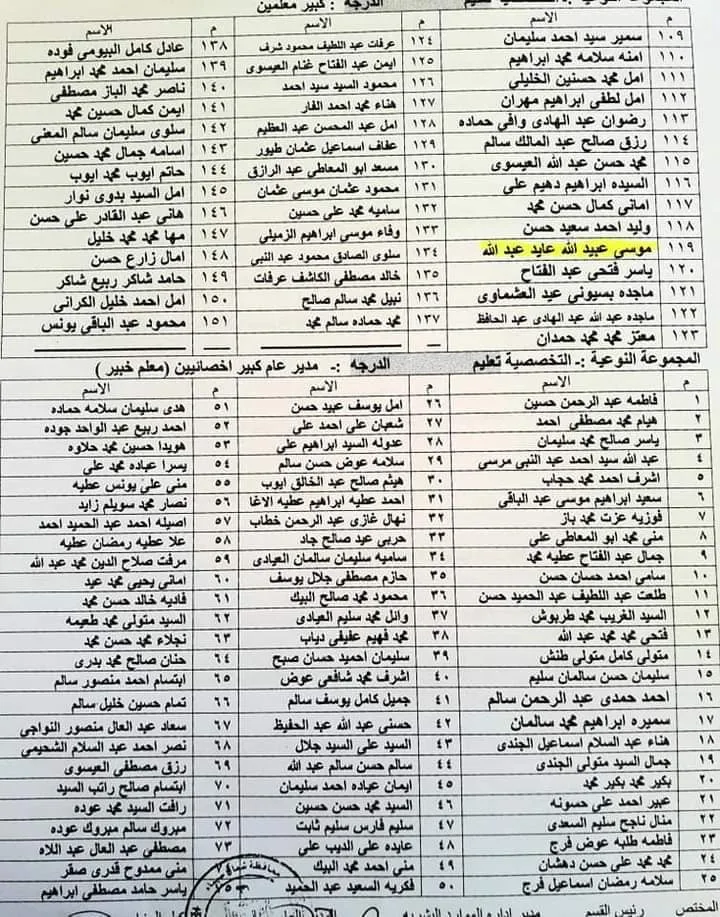 الدرجة : كبير معلمين
م الاسم م الاسم م الاسم
١٠٩ سمير سيد احمد سليمان ١٢٤ عرفات عبد اللطيف محمود شرف ١٣٨ عادل كامل البيومى فوده
١١٠ امنه سلامه محمد ابراهيم ١٢٥ ايمن عبد الفتاح غنام العيسوى ١٣٩ سليمان احمد محمد ابراهيم
١١١ امل محمد حسنين الخليلى ١٢٦ محمود السيد سيد احمد ١٤٠ ناصر محمد الباز مصطفى
١١٢ امل لطفى ابراهيم مهران ١٢٧ هناء محمد احمد الفار ١٤١ ايمن كمال حسين محمد
١١٣ رضوان عبد الهادى وافى حماده ١٢٨ امل عبد المحسن عبد العظيم ١٤٢ سلوى سليمان سالم المغنى
١١٤ رزق صالح عبد المالك سالم ١٢٩ عفاف اسماعيل عثمان طيور ١٤٣ اسامه جمال محمد حسين
١١٥ محمد حسن عبد الله العيسوى ١٣٠ مسعد ابو المعاطى عبد الرازق ١٤٤ حاتم ايوب محمد ايوب
١١٦ السيده ابراهيم دهيم على ١٣١ محمود عثمان موسى عثمان ١٤٥ امل السيد بدوى نوار
١١٧ امانى كمال حسن محمد ١٣٢ ساميه محمد على حسين ١٤٦ هانى عبد القادر على حسن
١١٨ وليد احمد سعيد حسن ١٣٣ وفاء موسى ابراهيم الزميلى ١٤٧ مها محمد محمد خليل
١١٩ موسى عبيد الله عايد عبد الله ١٣٤ سلوى الصادق محمود عبد النبى ١٤٨ امال زارع حسن
١٢٠ ياسر فتحى عبد الفتاح ١٣٥ خالد مصطفى الكاشف عرفات ١٤٩ حامد شاكر ربيع شاكر
١٢١ ماجده بسيونى عيد العشماوى ١٣٦ نبيل محمد سالم صالح ١٥٠ امل احمد خليل الكرانى
١٢٢ ماجده عبد الله عبد الهادى عبد الحافظ ١٣٧ محمد حماده سالم محمد ١٥١ محمود عبد الباقى يونس
١٢٣ معتز محمد محمد حمدان
المجموعة النوعية :ـ التخصصية تعليم الدرجه :ـ مدير عام كبير اخصائيين (معلم خبير )
م الاسم م الاسم م الاسم
١ فاطمه عبد الرحمن حسين ٢٦ امل يوسف عبيد حسن ٥١ هدى سليمان سلامه حماده
٢ هيام محمد مصطفى احمد ٢٧ شعبان على احمد على ٥٢ احمد ربيع عبد الواحد جوده
٣ ياسر صالح محمد سليمان ٢٨ عدوله السيد ابراهيم على ٥٣ هويدا حسين محمد حلاوه
٤ عبد الله سيد احمد عبد النبى مرسى ٢٩ سلامه عوض حسن سالم ٥٤ يسرا عياده محمد على
٥ اشرف احمد محمد حجاب ٣٠ هيثم صالح عبد الخالق ايوب ٥٥ منى على يونس عطيه
٦ سعيد ابراهيم موسى عبد الباقى ٣١ احمد عطيه ابراهيم عطيه الاغا ٥٦ نصار محمد سويلم زايد
٧ فوزيه عزت محمد باز ٣٢ نهال غازى عبد الرحمن خطاب ٥٧ اصيله احمد عبد الحميد احمد
٨ منى محمد ابو المعاطى على ٣٣ حربى عيد صالح جاد ٥٨ علا عطيه رمضان عطيه
٩ جمال عبد الفتاح عطيه محمد ٣٤ ساميه سليمان سالمان العيادى ٥٩ مرفت صلاح الدين محمد عبد الله
١٠ سامى احمد حسان حسن ٣٥ حازم مصطفى جلال يوسف ٦٠ امانى يحيى محمد عيد
١١ طلعت عبد اللطيف عبد الحميد حسن ٣٦ محمود محمد صالح البيك ٦١ فاديه خالد حسن محمد
١٢ السيد الغريب محمد طربوش ٣٧ وائل محمد سليم العيادى ٦٢ السيد متولى محمد طعيمه
١٣ فتحى محمد محمد عبد الله ٣٨ محمد فهيم عفيفى دياب ٦٣ نجلاء محمد حسن محمد
١٤ متولى كامل متولى طنش ٣٩ سليمان احميد حسان صبح ٦٤ حنان صالح محمد بدرى
١٥ سليمان حسن سالمان سليم ٤٠ اشرف محمد شافعى عوض ٦٥ ابتسام احمد منصور سالم
١٦ احمد حمدى عبد الرحمن سالم ٤١ جميل كامل يوسف سالم ٦٦ تمام حسين خليل سالم
١٧ سميره ابراهيم محمد سالمان ٤٢ حسنى عبد الله عبد الحفيظ ٦٧ سعاد عبد العال منصور النواجى
١٨ هناء عبد السلام اسماعيل الجندى ٤٣ السيد على السيد جلال ٦٨ نصر احمد عبد السلام الشحيمى
١٩ جمال السيد متولى الجندى ٤٤ سالم حسن سالم عبد الله ٦٩ رزق مصطفى العيسوى
٢٠ بكير محمد بكير محمد ٤٥ ايمان عياده احمد سليمان ٧٠ ابتسام صالح راتب السيد
٢١ عبير احمد على حسونه ٤٦ السيد محمد حسن حسين ٧١ رافت السيد محمد عوده
٢٢ منال ناجح سليم السعدى ٤٧ سليم فارس سليم ثابت ٧٢ مبروك سالم مبروك عوده
٢٣ فاطمه طلبه عوض فرج ٤٨ عايده على الديب على ٧٣ مصطفى عبد العال عبد اللاه
٢٤ محمد محمد على حسن دهشان ٤٩ منى احمد محمد البيك منى ممدوح قدرى صقر
٢٥ سلامه رمضان اسماعيل فرج ٥٠ فكريه السعيد عبد الحميد ياسر حامد مصطفى ابراهيم
المختص رئيس القسم مدير اداره الموارد البشريه